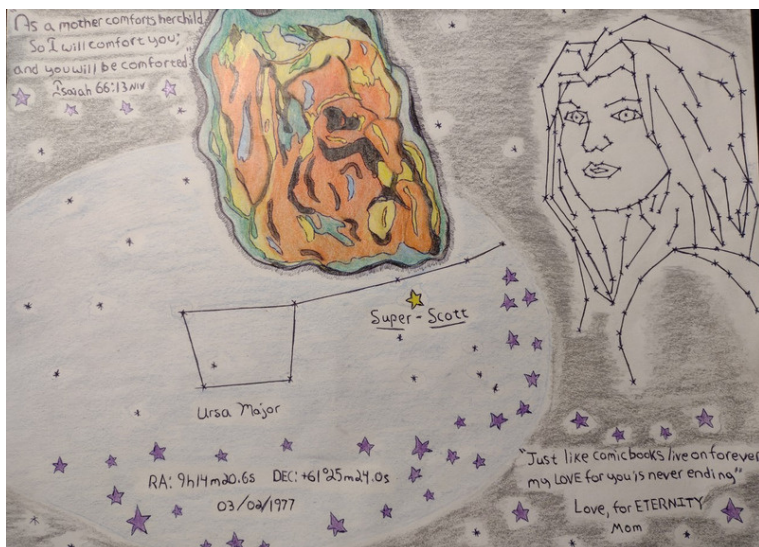 As a mother comforts her child,
So I will comfort you;
and you will be comforted."
Isaiah 66:13 NIV
Super-Scott
Ursa Major
RA: 9h14m20.6s DEC: +61°25m24.0s
03/02/1977
"Just like comicbooks live on forever
my LOVE for you is never ending"
Love, for ETERNITY
Mom